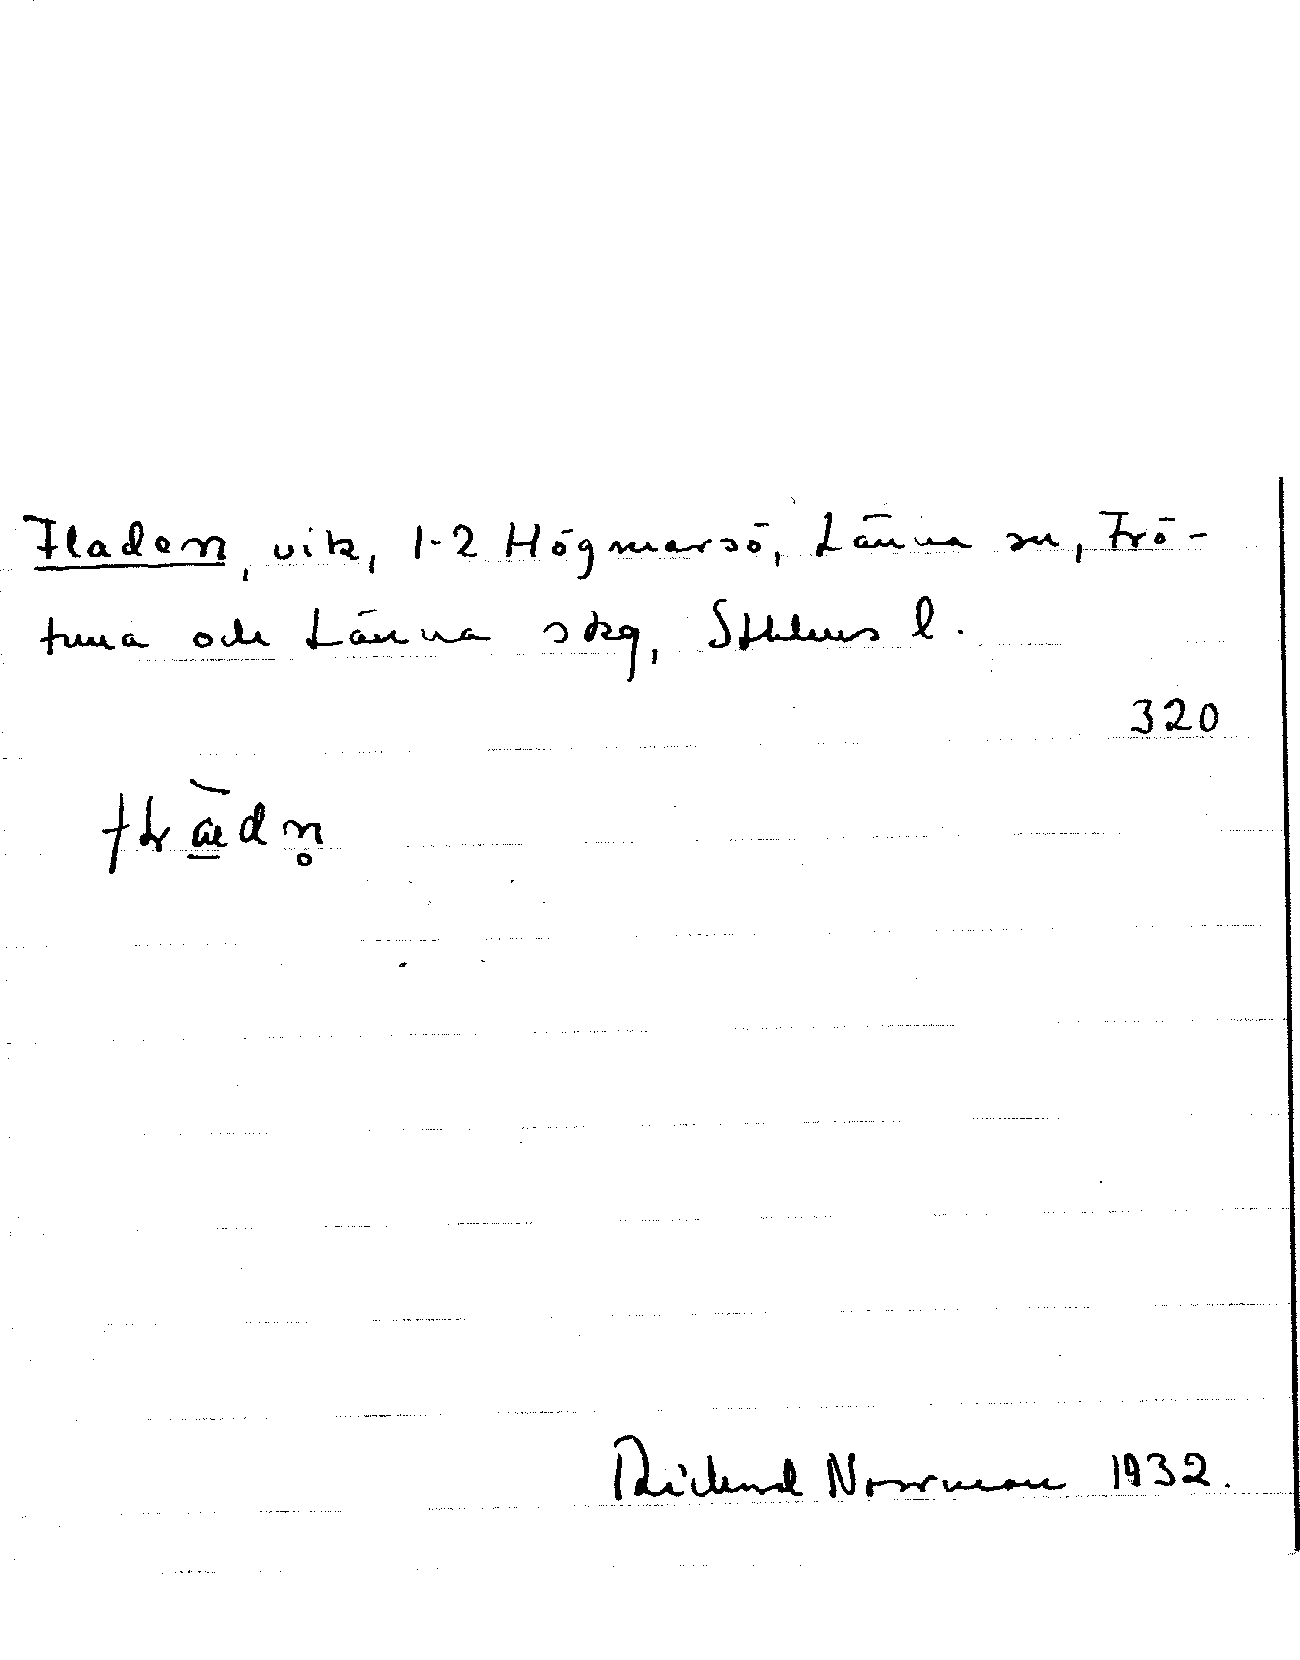 Fladen, vik, 1-2 Högmarsö, Länna sn, Frö-
tuna och Länna skg, Sthlms l.
320
Rickard Norrman 1932.